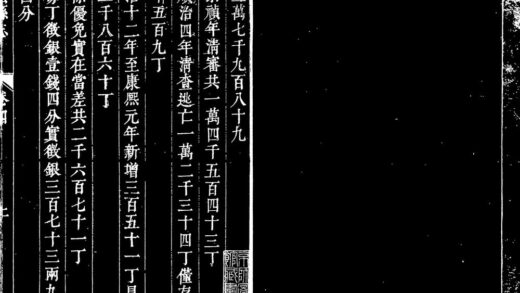 萬七千九百八十九
禎年清審共一萬四千五百四十三丁
治四年清查逃亡一萬二千三十四丁僅存
五百九丁
十二年至康熙元年新增三百五十一丁
千八百六十丁
優免實在當差共二千六百七十一丁
丁徵銀壹錢四分實徵銀三百七十三兩九
分